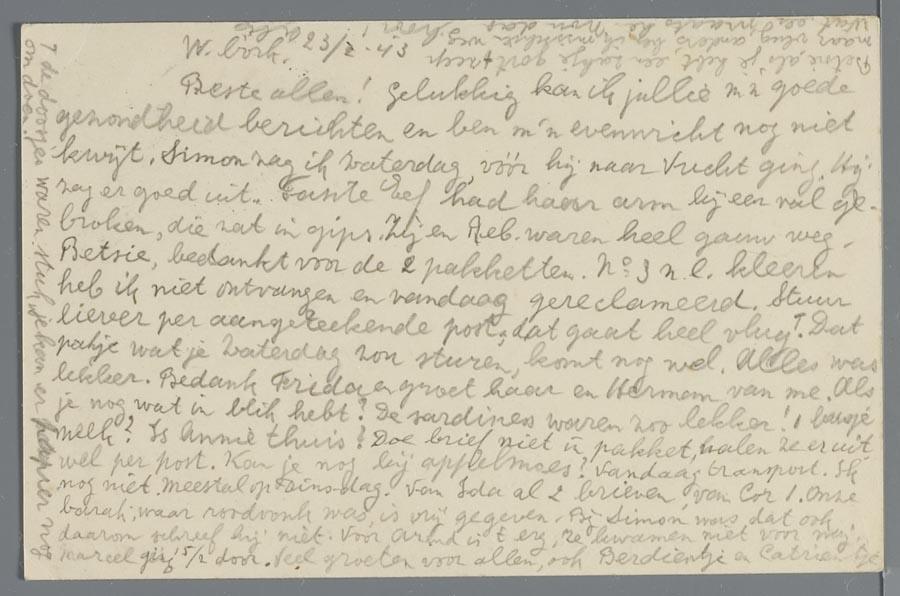 W.börk. 23/2-43
Beste allen! Gelukkig kan ik jullie m'n goede
gezondheid berichten en ben m'n evenwicht nog niet
kwijt. Simon zag ik Zaterdag, vóór hij naar Vucht ging. Hij
zag er goed uit. Tante Eef had haar arm bij een val ge-
broken, die zat in gips. Zij en Reb. waren heel gauw weg.
Betsie, bedankt voor de 2 pakketten. No 3 n.l. kleeren
heb ik niet ontvangen en vandaag gereclameerd. Stuur
liever per aangeteekende post, dat gaat heel vlug. Dat
pakje wat je Zaterdag zou sturen, komt nog wel. Alles was
lekker. Bedank Frida en groet haar en Herman van me. Als
je nog wat in blik hebt? De sardines waren zoo lekker! 1 busje
melk? Is Annie thuis? Doe brief niet in pakket, halen ze er uit,
wel per post. Kan je nog bij appelmoes? Vandaag transport. Ik
nog niet. Meestal op Dinsdag. Van Ida al 2 brieven, van Cor 1. Onze
barak, waar roodvonk was, is vrij gegeven. Bij Simon was dat ook
daarom schreef hij niet. Voor is 't erg, ze kwamen niet voor vrij.
Marcel ging 5/2 door. Veel groeten voor allen, ook Berdientje en Catrientje
7 de doosjes waren stuk, je kan er papier nog
om doen!
Betsie als je hebt, een zakje gort, zeep
maar vlug, anders ben ik misschien weg hoor!